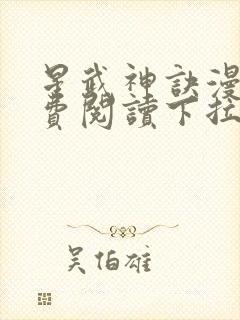 星武神訣漫
費閱讀下拉
吳伯雄